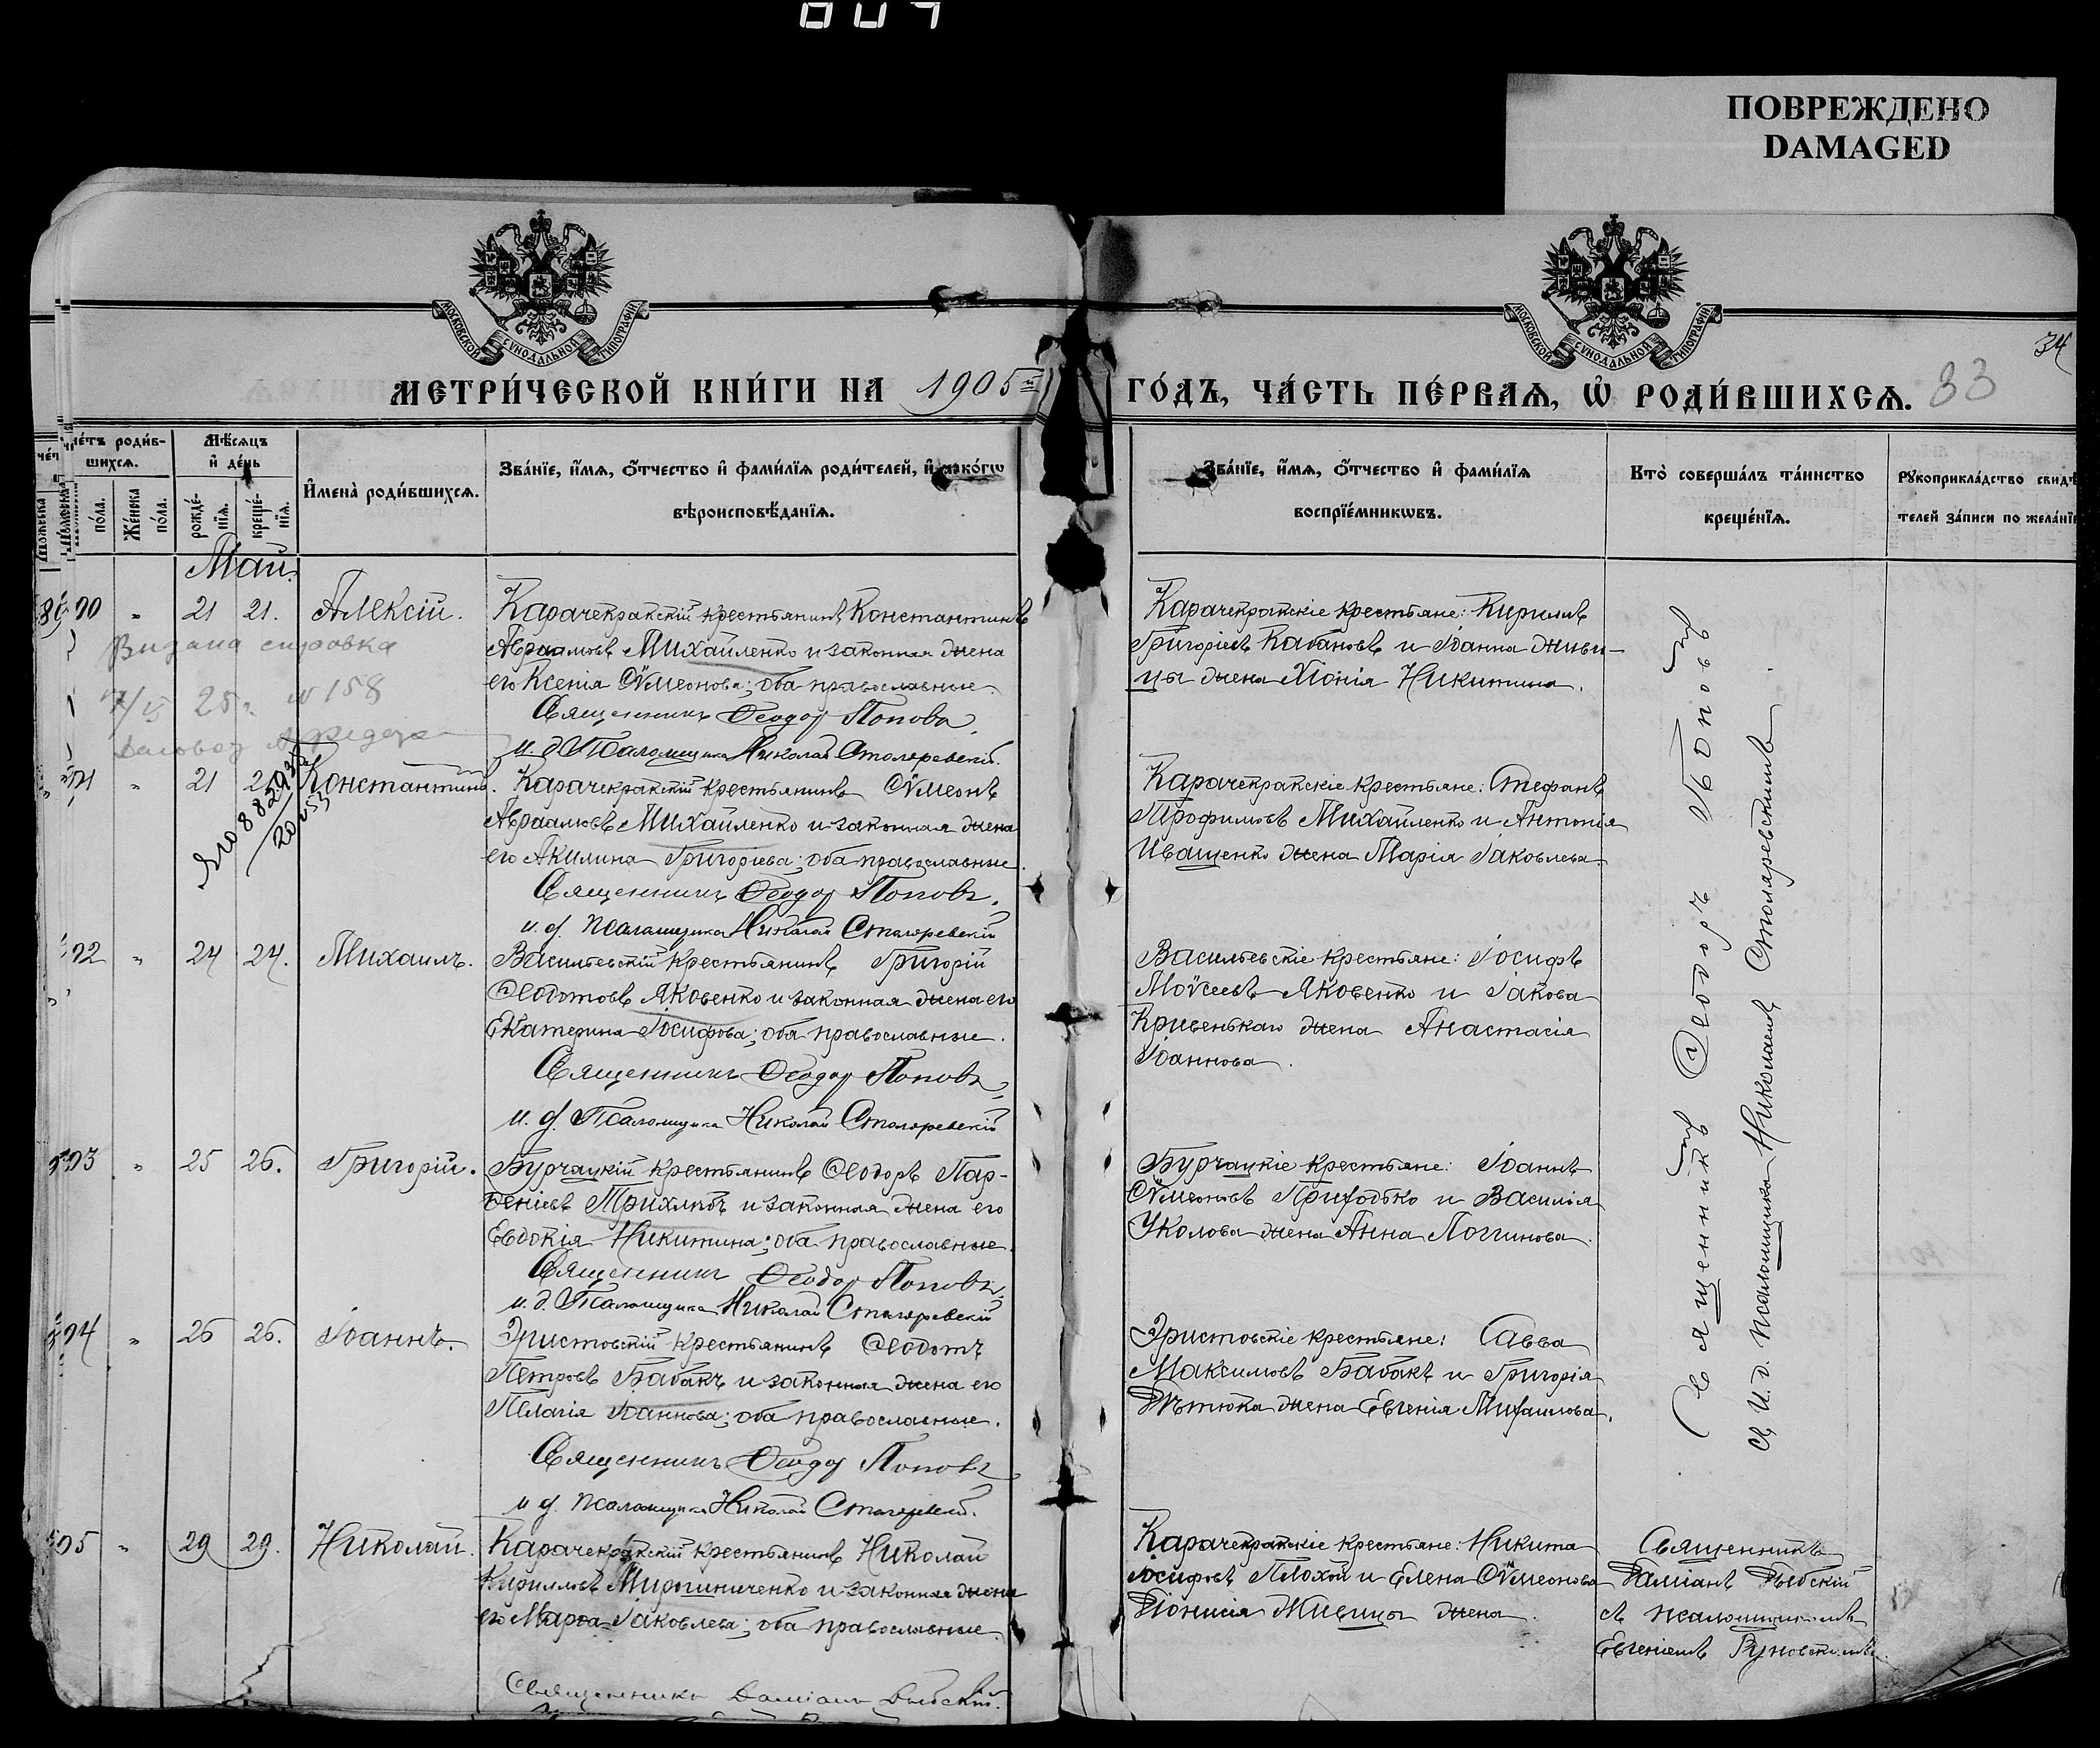 ПОВРЕЖДЕНО
DAMAGED
МОСКОВСКОЙ СУНОДАЛЬНОЙ ТИПОГРАФІИ
МОСКОВСКОЙ СУНОДАЛЬНОЙ ТИПОГРАФІИ
34
МЕТРИ́ЧЕСКОЙ КНИ́ГИ НА 1905й ГО́ДЪ, ЧА́СТЬ ПЕ́РВАѦ, Ѡ҆ РОДИ́ВШИХСѦ. 33
Мѣ́сѧцъ и҆ де́нь
шихсѧ.
по́ла.
Же́нска по́ла.
рожде́-нїѧ.
креще́-нїѧ.
И҆мена̀ роди́вшихсѧ.
Зва́нїе, и҆́мѧ, ѻ҆́тчество и҆ фами́лїѧ роди́телей, и҆ како́гѡ
вѣроисповѣ́данїѧ.
Зва́нїе, и҆́мѧ, ѻ҆́тчество и҆ фами́лїѧ
воспрїе́мникѡвъ.
Кто̀ соверша́лъ та́инство
креще́нїѧ.
Рꙋкоприкла́дство свидѣ
телей за́писи по жела́нїю
Май.
90 " 21 21. Алексій.
Карачекракскій крестьянинъ Константинъ
Авраамовъ Михайленко и законная жена
его Ксенія Сѵмеонова; оба православные.
Священникъ Ѳеодоръ Поповъ
и. д. Псаломщика Николай Столяревскій.
Карачекракскіе крестьяне: Кириллъ
Григоріевъ Кабановъ и Іоанна Живи-
цы жена Хіонія Никитина.
Видана справка
25 г. № 158
91 " 21 Константинъ.
Карачекракскій крестьянинъ Сѵмеонъ
Авраамовъ Михайленко и законная жена
его Акилина Григоріева; оба православные.
Священникъ Ѳеодоръ Поповъ.
и. д. Псаломщика Николай Столяревскій
Карачекракскіе крестьяне: Стефанъ
Трофимовъ Михайленко и Антонія
Иващенко жена Марія Іаковлева.
92 " 24 24. Михаилъ.
Васильевскій крестьянинъ Григорій
Ѳеодотовъ Яковенко и законная жена его
Екатерина Іосифова; оба православные.
Священникъ Ѳеодоръ Поповъ
и. д. Псаломщика Николай Столяревскій
Васильевскіе крестьяне: Іосифъ
Моѵсеевъ Яковенко и Іакова
Кривенькаго жена Анастасія
Іоаннова.
93 " 25 26. Григорій.
Бурчацкій крестьянинъ Ѳеодоръ Пар-
ѳеніевъ и законная жена его
Евдокія Никитина; оба православные.
Священникъ Ѳеодоръ Поповъ
и. д. Псаломщика Николай Столяревскій
Бурчацкіе крестьяне: Іоаннъ
Сѵмеоновъ Приходько и Василія
Уколова жена Анна Логгинова.
94 " 26 26. Іоаннъ.
Эристовскій крестьянинъ Ѳеодотъ
Петровъ Бабакъ и законная жена его
Пелагія Іоаннова; оба православные.
Священникъ Ѳеодоръ Поповъ
и. д. Псаломщика Николай Столяревскій.
Эристовскіе крестьяне: Савва
Максимовъ Бабакъ и Григорія
жена Евгенія Михаилова.
Священникъ Ѳеодоръ Поповъ
съ и. д. псаломщика Николаемъ Столяревскимъ.
95 " 29 29. Николай.
Карачекракскій крестьянинъ Николай
Кирилловъ Мирошниченко и законная жена
его Марѳа Іаковлева; оба православные.
Священникъ Даміанъ
Карачекракскіе крестьяне: Никита
Іосифовъ Плохой и Елена Сѵмеонова
Діонисія Живицы жена.
Священникъ
Даміанъ
съ псаломщикомъ
Евгеніемъ